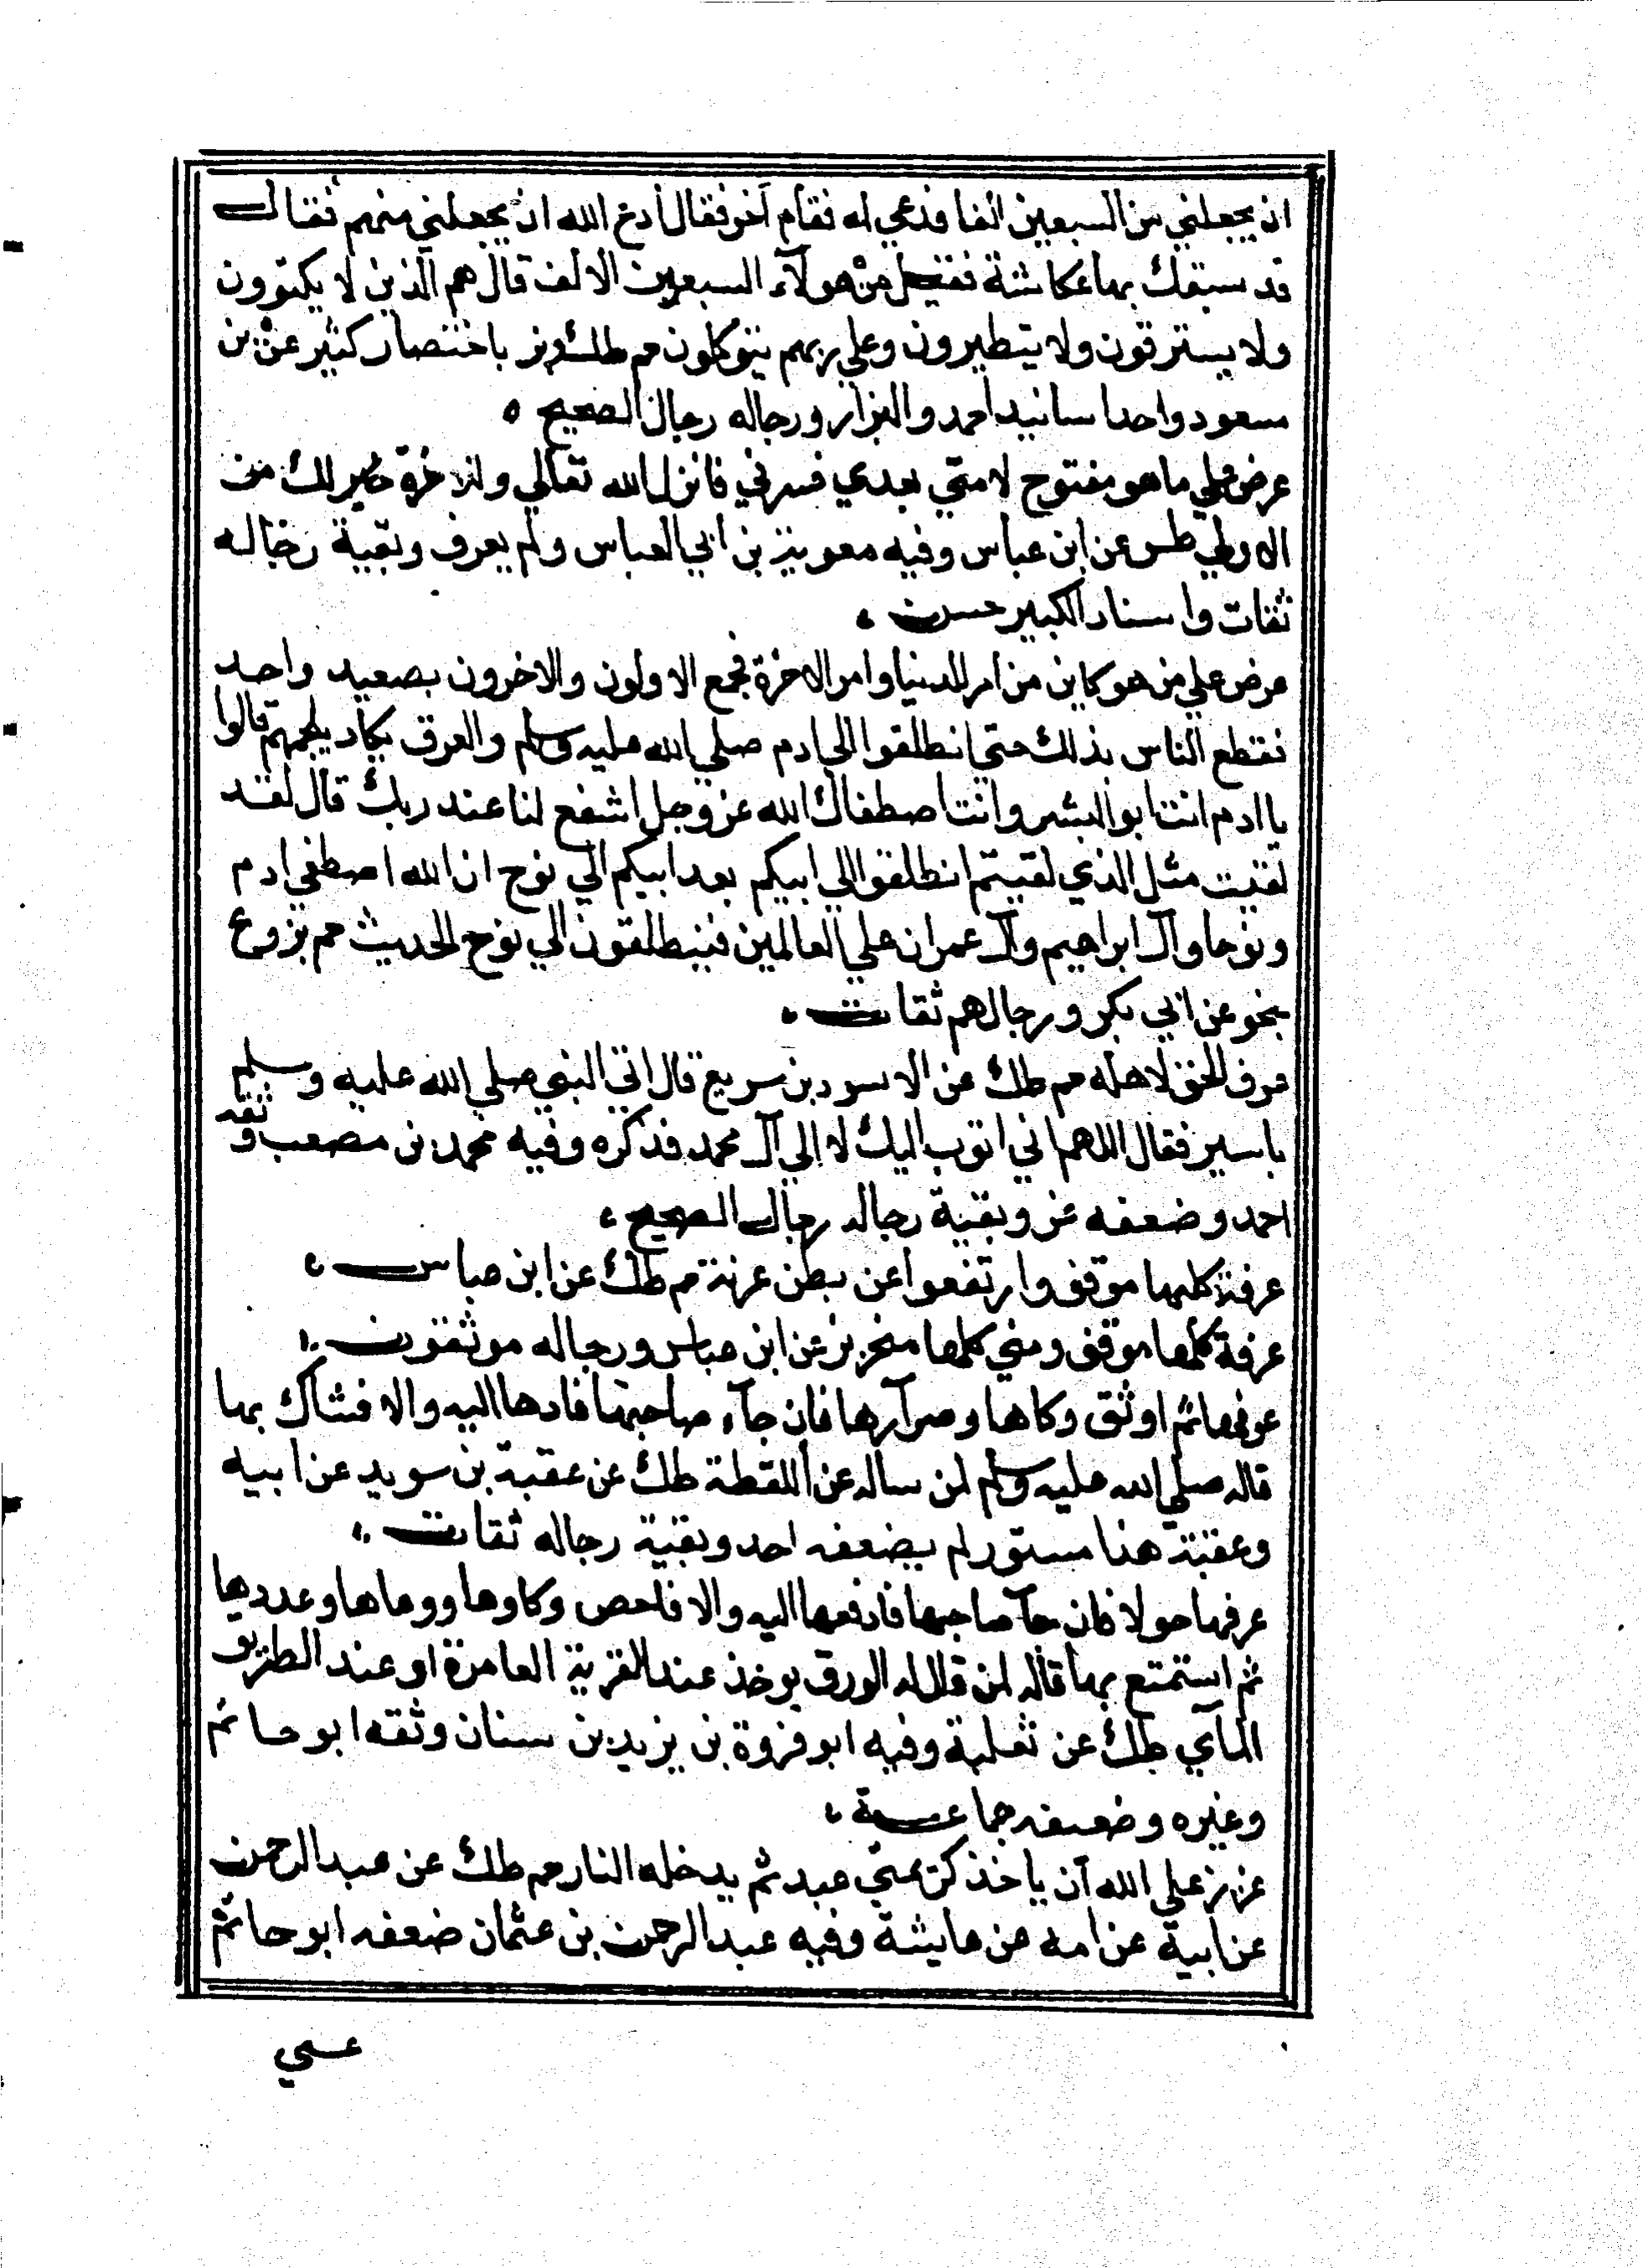 ان يجعلني من السبعين الفا فدعي له فقام آخر فقال ادع الله ان يجعلني منهم فقال
قد سبقك بها عكاشة فقيل من هولآء السبعين الالف قال هم الذين لا يكتوون
ولا يسترقون ولا يتطيرون وعلي ربهم يتوكلون حم طك وبز باختصار كثير عن بن
مسعود واحد اسانيد احمد والبزار ورجاله رجال الصحيح ه
عرض علي ما هو مفتوح لامتي بعدي فسرني فانزل الله تعالي وللاخرة خير لك من
الاولي طس عن ابن عباس وفيه معوية بن ابي العباس ولم يعرف وبقية رجاله
ثقات واسناد الكبير حسن ه
عرض علي من هو كاين من امر الدنيا وامر الاخرة فجمع الاولون والاخرون بصعيد واحد
فقطع الناس بذلك حتي انطلقوا الي ادم صلي الله عليه وسلم والعرق يكاد يلجمهم قالوا
يا ادم انت ابو البشر وانت اصطفاك الله عز وجل اشفع لنا عند ربك قال لقد
لقيت مثل الذي لقيتم انطلقوا الي ابيكم بعد ابيكم الي نوح ان الله اصطفي ادم
ونوحا وآل ابراهيم وآل عمران علي العالمين فينطلقون الي نوح الحديث حم بز وع
بنحو عن ابي بكر ورجالهم ثقات ه
عرف الحق لاهله حم طك عن الاسود بن سريع قال اتي النبي صلي الله عليه وسلم
باسير فقال اللهم اني اتوب اليك لا الي آل محمد فذكره وفيه محمد بن مصعب وثقه
احمد وضعفه غز وبقية رجاله رجال الصحيح ه
عرفة كلها موقف وارتفعوا عن بطن عرنة حم طك عن ابن عباس ه
عرفة كلها موقف ومني كلها منحر بز عن ابن عباس ورجاله موثقون ه
عرفها ثم اوثق وكاها وصرآرها فان جآء صاحبها فادها اليه والا فشاك بها
قاله صلي الله عليه وسلم لمن ساله عن اللقطة طك عن عقبة بن سويد عن ابيه
وعقبة هذا مستور لم يضعفه احد وبقية رجاله ثقات ه
عرفها حولا فان جآ صاحبها فادفعها اليه والا فاحص وكاوها ووعاها وعددها
ثم استمتع بها قاله لمن قال له الورق يوخذ عند القرية العامرة او عند الطريق
المآتي طك عن ثعلبة وفيه ابو فروة بن يزيد بن سنان وثقه ابو حاتم
وغيره وضعفه جماعة ه
عزيز علي الله ان ياخذ كريمتي عبد ثم يدخله النار حم طك عن عبد الرحمن
عن ابية عن امه عن عايشة وفيه عبد الرحمن بن عثمان ضعفه ابو حاتم
عسي